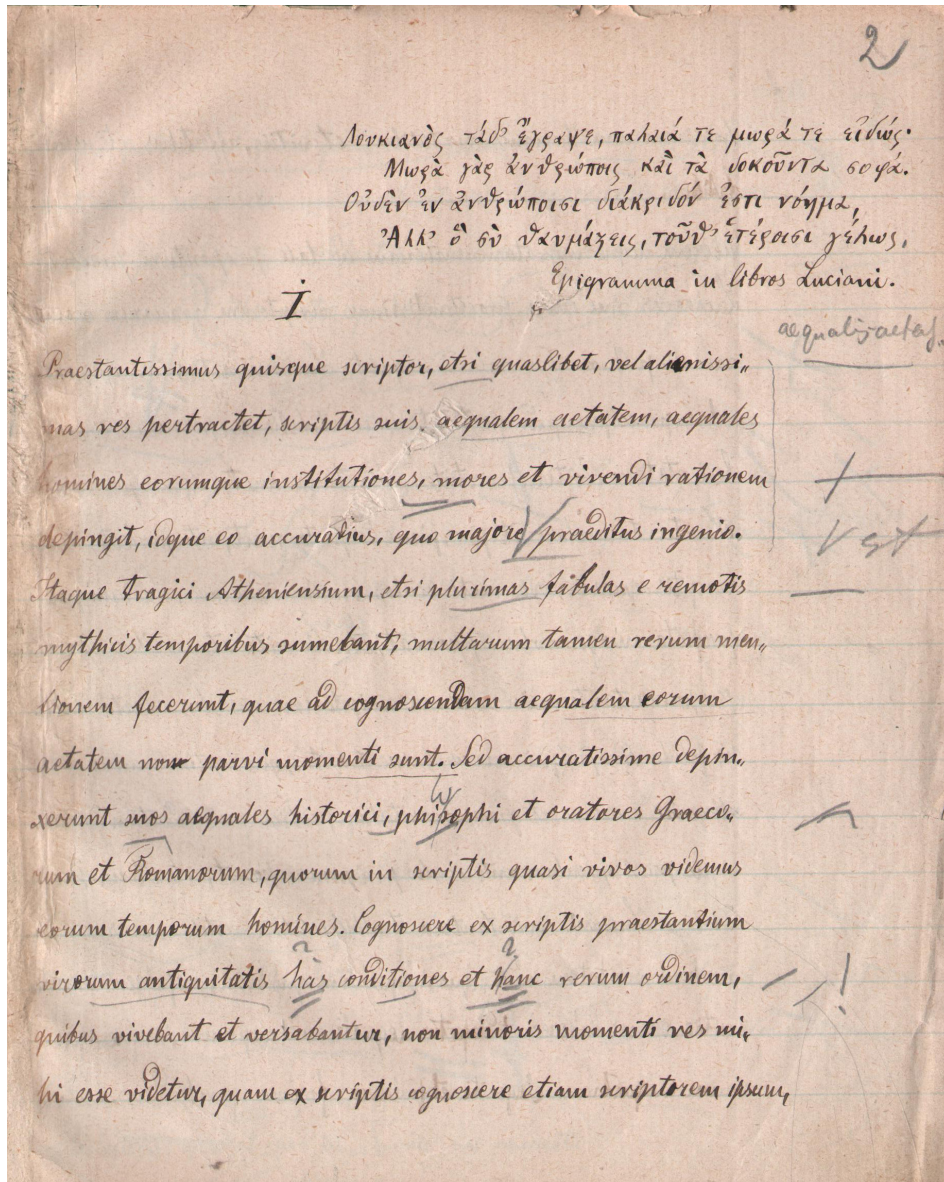 2
Λουκιανὸς τάδ' ἔγραψε, παλαιά τε μωρά τε εἰδώς·
Μωρὰ γὰρ ἀνθρώποις καὶ τὰ δοκοῦντα σοφά.
Οὐδὲν ἐν ἀνθρώποισι διάκριδόν ἐστι νόημα,
Ἀλλ' ὃ σὺ θαυμάζεις, τοῦθ' ἑτέροισι γέλως.
Epigramma in libros Luciani.
I
aequalis aetas
Praestantissimus quisque scriptor, etsi quaslibet, vel alienissi„
mas res pertractet, scriptis suis aequalem aetatem, aequales
homines eorumque institutiones, mores et vivendi rationem
depingit, idque eo accuratius, quo majore praeditus ingenio.
V est
Itaque tragici Atheniensium, etsi plurimas fabulas e remotis
mythicis temporibus sumebant, multarum tamen rerum men„
tionem fecerunt, quae ad cognoscendam aequalem eorum
aetatem non parvi momenti sunt. Sed accuratissime depin„
xerunt suos aequales historici, phisophi et oratores Graeco„
lo
rum et Romanorum, quorum in scriptis quasi vivos videmus
eorum temporum homines. Cognoscere ex scriptis praestantium
virorum antiquitatis has conditiones et hanc rerum ordinem,
? ? !
quibus vivebant et versabantur, non minoris momenti res mi„
hi esse videtur, quam ex scriptis cognoscere etiam scriptorem ipsum,